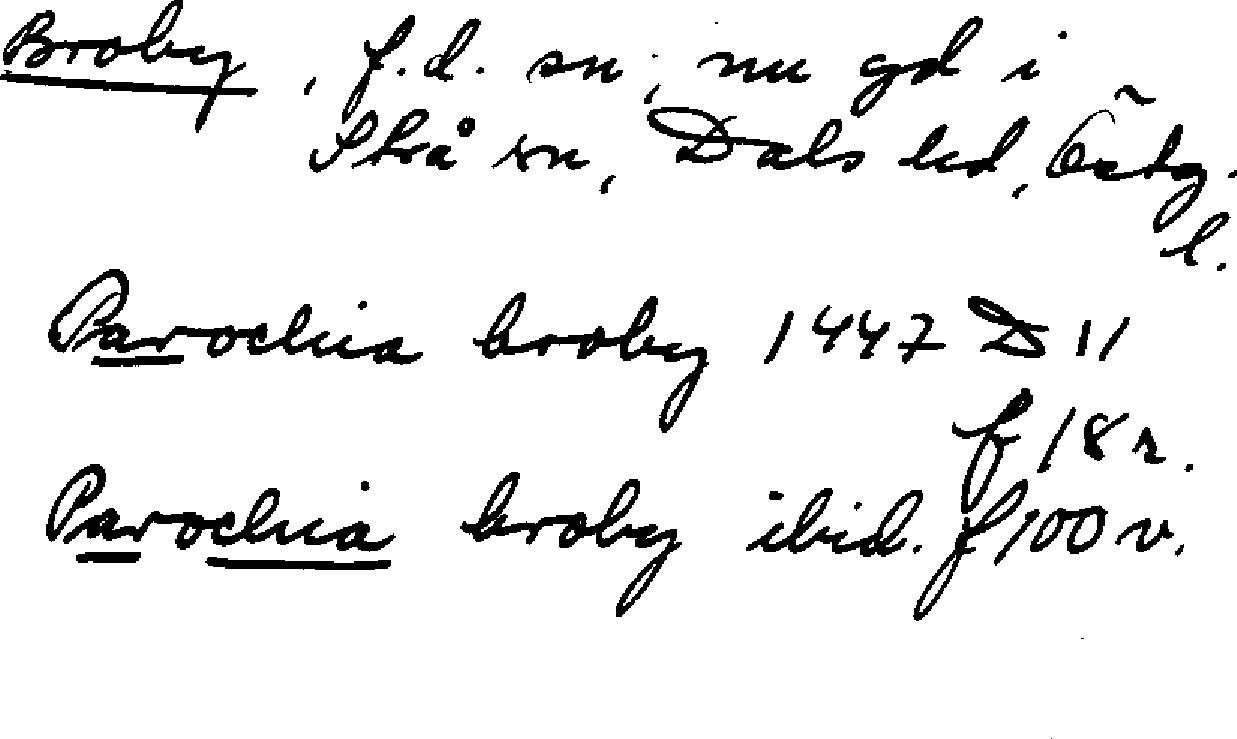 Broby, f.d. sn, nu gd i
Strå sn, Dals hd, Östg.
l.
Parochia broby 1447 D 11
f 18 r.
Parochia broby ibid. f 100 v.